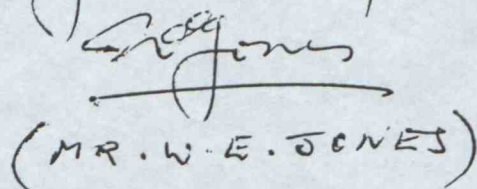 WEJones
(MR. W. E. JONES)